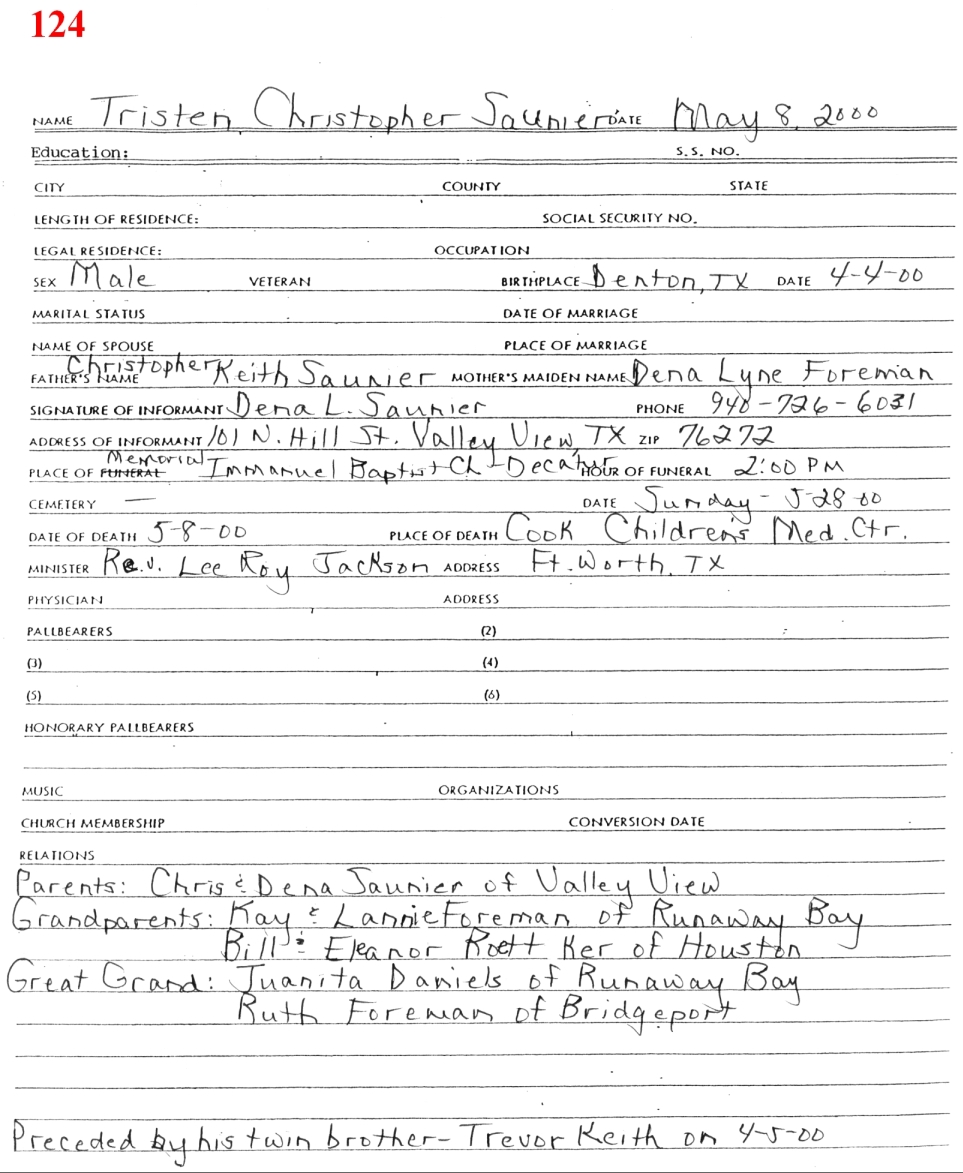 124
NAME Tristen Christopher Saunier DATE May 8, 2000
Education: S.S. NO.
CITY COUNTY STATE
LENGTH OF RESIDENCE: SOCIAL SECURITY NO.
LEGAL RESIDENCE: OCCUPATION
SEX Male VETERAN BIRTHPLACE Denton, TX DATE 4-4-00
MARITAL STATUS DATE OF MARRIAGE
NAME OF SPOUSE PLACE OF MARRIAGE
FATHER'S NAME Christopher Keith Saunier MOTHER'S MAIDEN NAME Dena Lyne Foreman
SIGNATURE OF INFORMANT Dena L. Saunier PHONE 940-726-6031
ADDRESS OF INFORMANT 101 N. Hill St. Valley View, TX ZIP 76272
PLACE OF FUNERAL Memorial Immanuel Baptist Ch - Decatur HOUR OF FUNERAL 2:00 PM
CEMETERY — DATE Sunday - 5-28-00
DATE OF DEATH 5-8-00 PLACE OF DEATH Cook Children's Med. Ctr.
MINISTER Rev. Lee Roy Jackson ADDRESS Ft. Worth, TX
PHYSICIAN ADDRESS
PALLBEARERS (2)
(3) (4)
(5) (6)
HONORARY PALLBEARERS
MUSIC ORGANIZATIONS
CHURCH MEMBERSHIP CONVERSION DATE
RELATIONS
Parents: Chris & Dena Saunier of Valley View
Grandparents: Kay & Lannie Foreman of Runaway Bay
Bill & Eleanor Roettker of Houston
Great Grand: Juanita Daniels of Runaway Bay
Ruth Foreman of Bridgeport
Preceded by his twin brother - Trevor Keith on 4-5-00